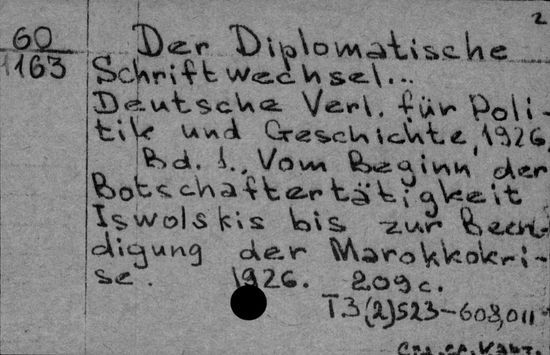 2
60
163
Der Diplomatische
Schriftwechsel...
Deutsche Verl. für Poli-
tik und Geschichte, 1926.
Bd. 1., Vom Beginn der
Botschaftertätigkeit
Iswolskis bis zur Been-
digung der Marokkokri-
se. 1926. 209c.
T3(2)523-603,011
См. сл. карт.